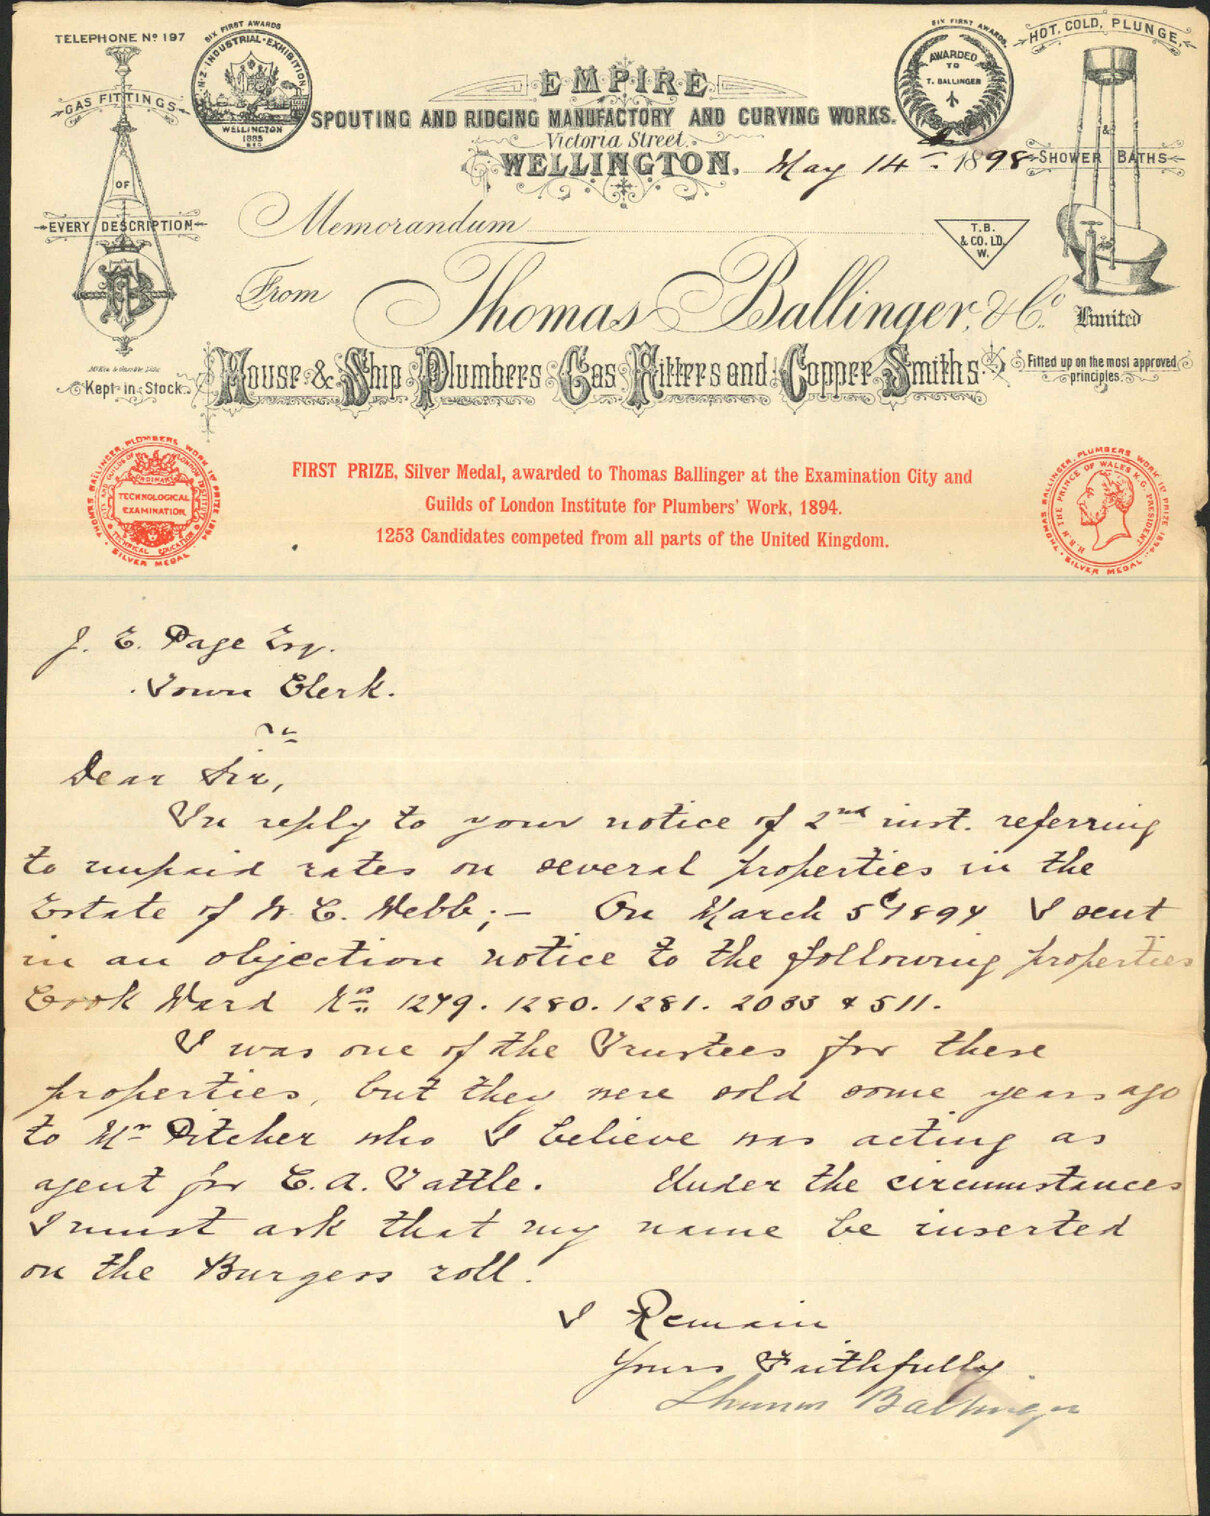 TELEPHONE No 197
GAS FITTINGS
OF
EVERY DESCRIPTION
TB
Kept in Stock.
SIX FIRST AWARDS
N.Z. INDUSTRIAL EXHIBITION
WELLINGTON
1885
EMPIRE
SPOUTING AND RIDGING MANUFACTORY AND CURVING WORKS.
Victoria Street.
WELLINGTON, May 14th 1898
SIX FIRST AWARDS.
AWARDED
TO
T. BALLINGER
HOT, COLD, PLUNGE,
&
SHOWER BATHS
Fitted up on the most approved
principles.
Memorandum
T.B.
& CO. LD.
W.
From Thomas Ballinger, & Co. Limited
House & Ship Plumbers Gas Fitters and Copper Smiths.
THOMAS BALLINGER, PLUMBERS WORK 1st PRIZE 1894
SILVER MEDAL
TECHNOLOGICAL
EXAMINATION
FIRST PRIZE, Silver Medal, awarded to Thomas Ballinger at the Examination City and
Guilds of London Institute for Plumbers' Work, 1894.
1253 Candidates competed from all parts of the United Kingdom.
THOMAS BALLINGER, PLUMBERS WORK 1st PRIZE 1894.
SILVER MEDAL
H.R.H. THE PRINCE OF WALES K.G. PRESIDENT
J. E. Page Esq.
Town Clerk.
Dear Sir,
In reply to your notice of 2nd inst. referring
to unpaid rates on several properties in the
Estate of W. C. Webb; — On March 5th 1897 I sent
in an objection notice to the following properties
Cook Ward Nos 1279. 1280. 1281. 2033 & 511.
I was one of the Trustees for these
properties, but they were sold some years ago
to Mr Pitcher who I believe was acting as
agent for C. A. Vattle. Under the circumstances
I must ask that my name be inserted
on the Burgess roll.
I Remain
Yours Faithfully
Thomas Ballinger